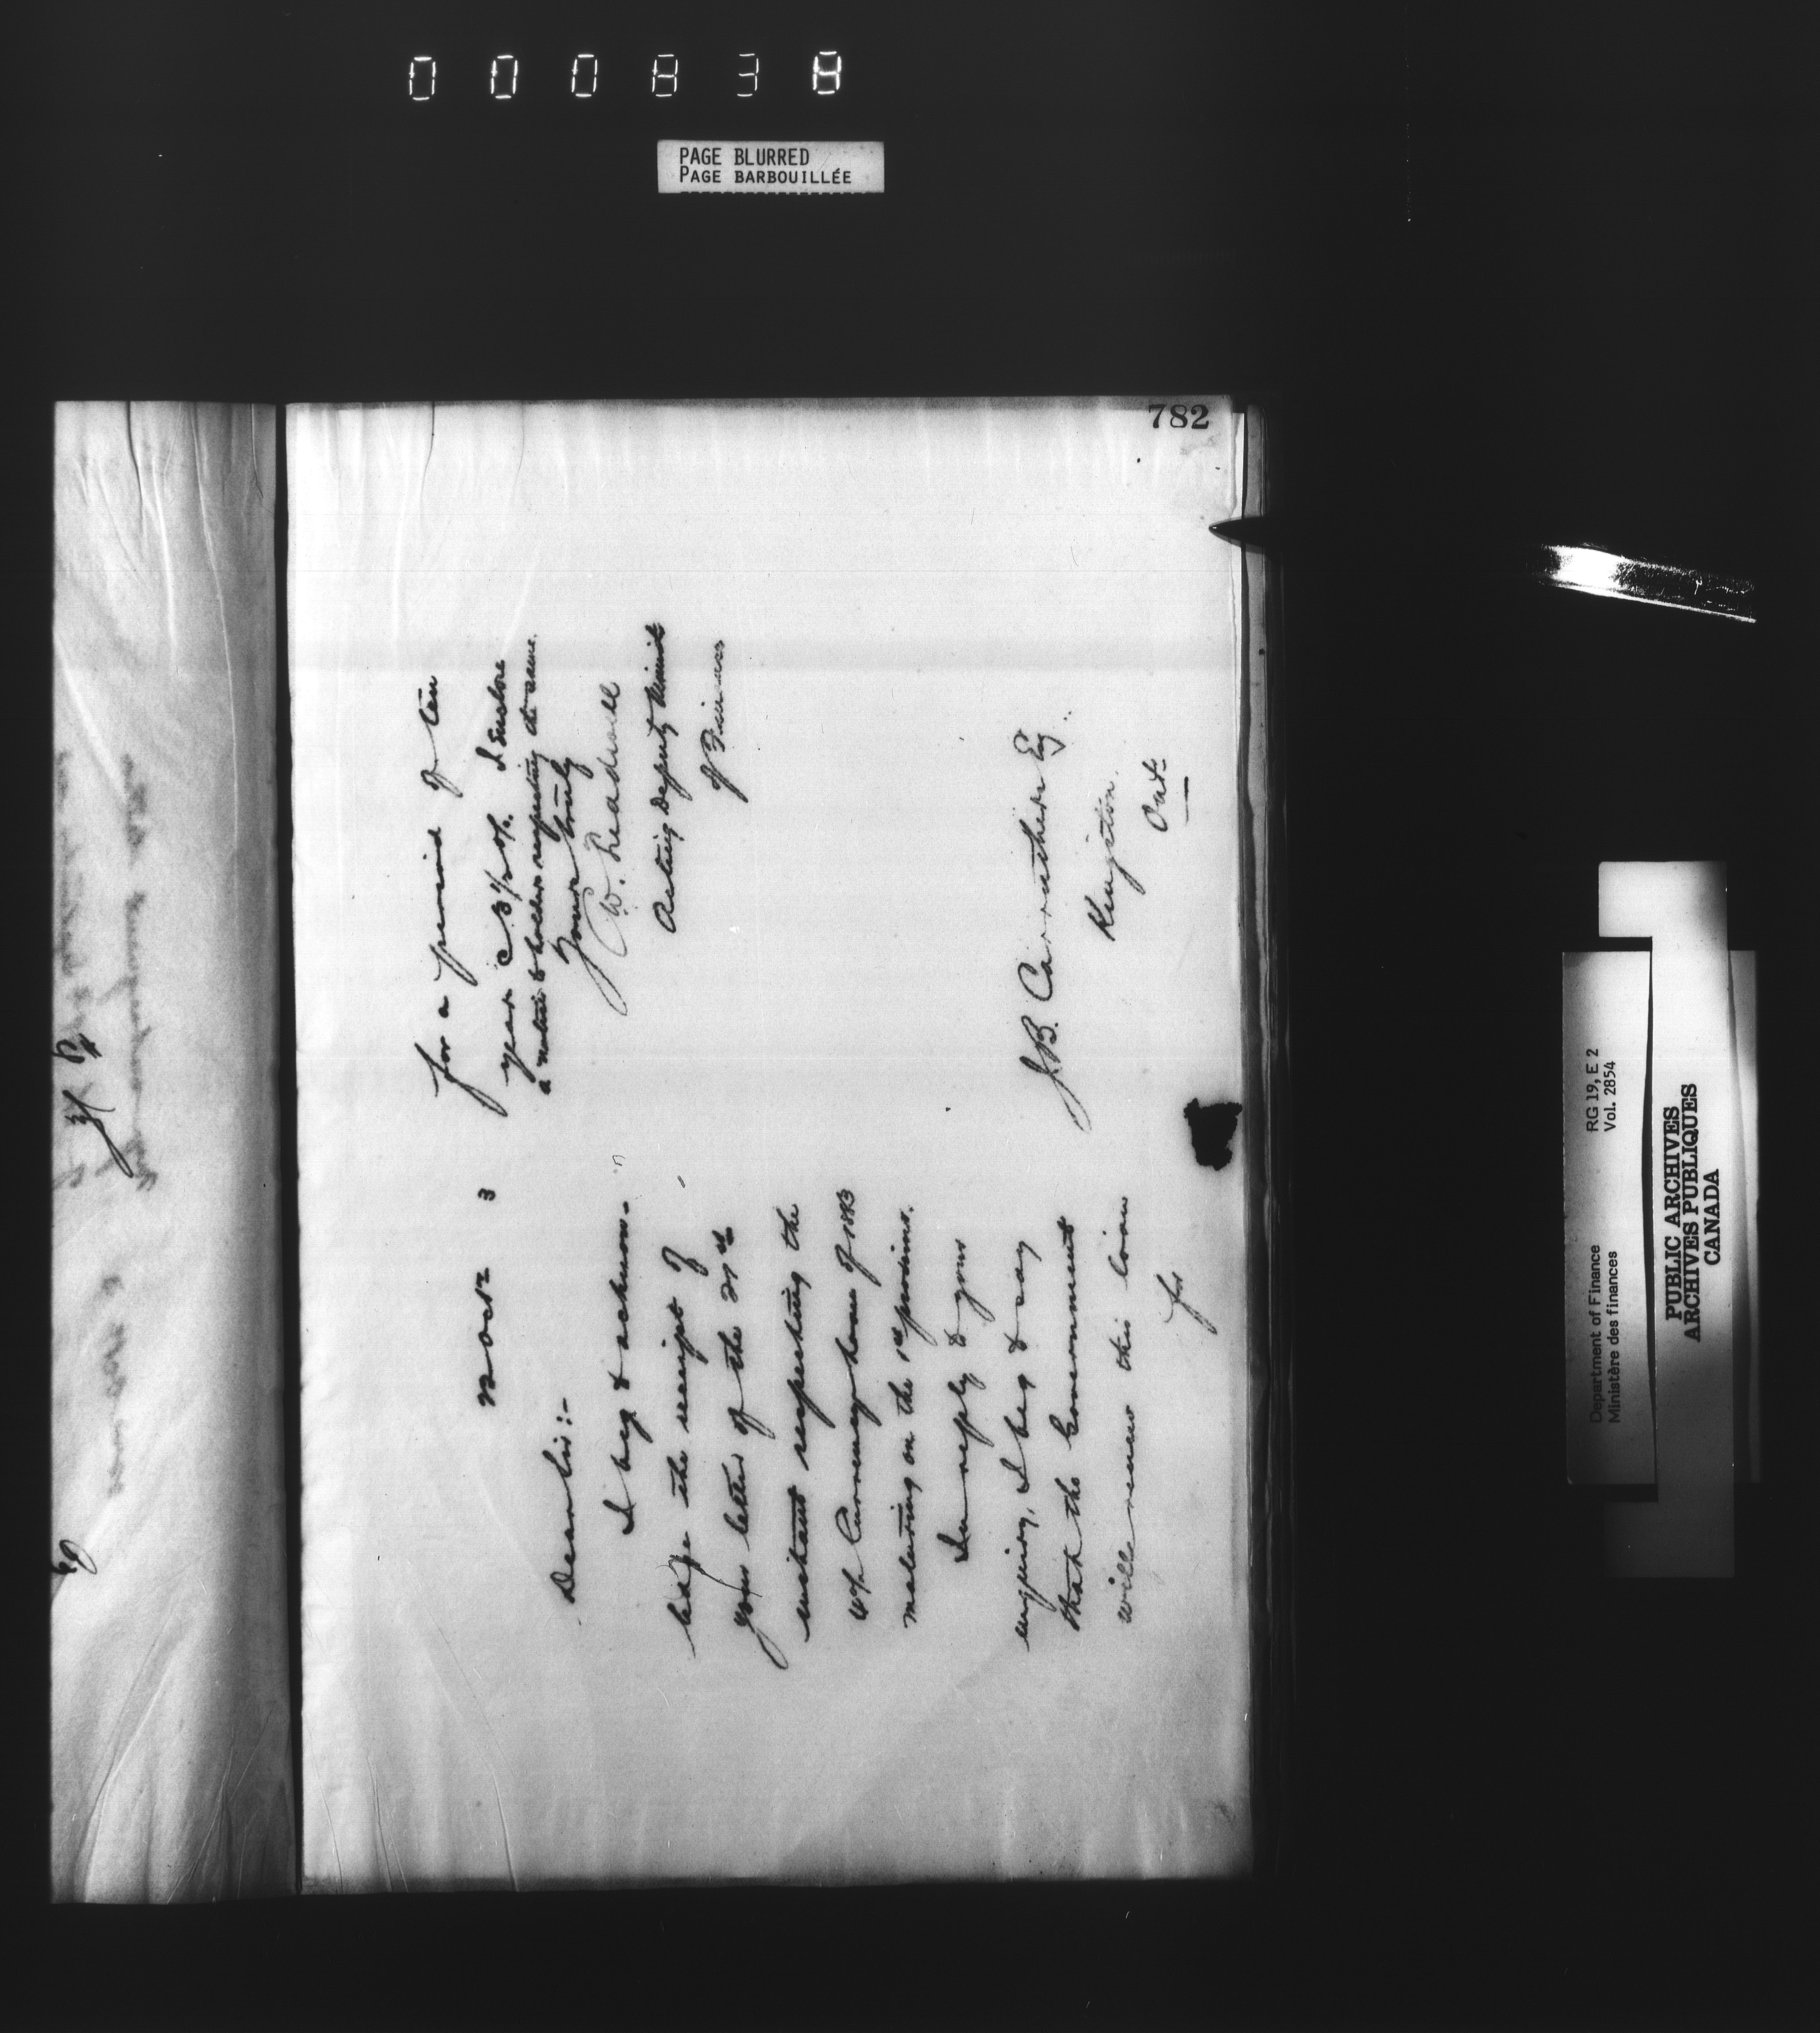 000838
PAGE BLURRED
PAGE BARBOUILLÉE
782
22 Octr 3
Dear Sir:-
I beg to acknow-
ledge the receipt of
your letter of the
instant respecting the
Currency loan of 1883
maturing on the 1st proximo.
In reply to your
enquiry, I beg to say
that the Government
will renew this loan
for
for a period of ten
years @ 3½ o/o. I enclose
a notice to holders respecting the same.
Yours truly
W.
Acting Deputy Minist
of Finance
J.B. Carruthers Esq.
Kingston.
Ont:
Department of Finance
Ministère des finances
RG 19, E 2
Vol. 2854
PUBLIC ARCHIVES
ARCHIVES PUBLIQUES
CANADA